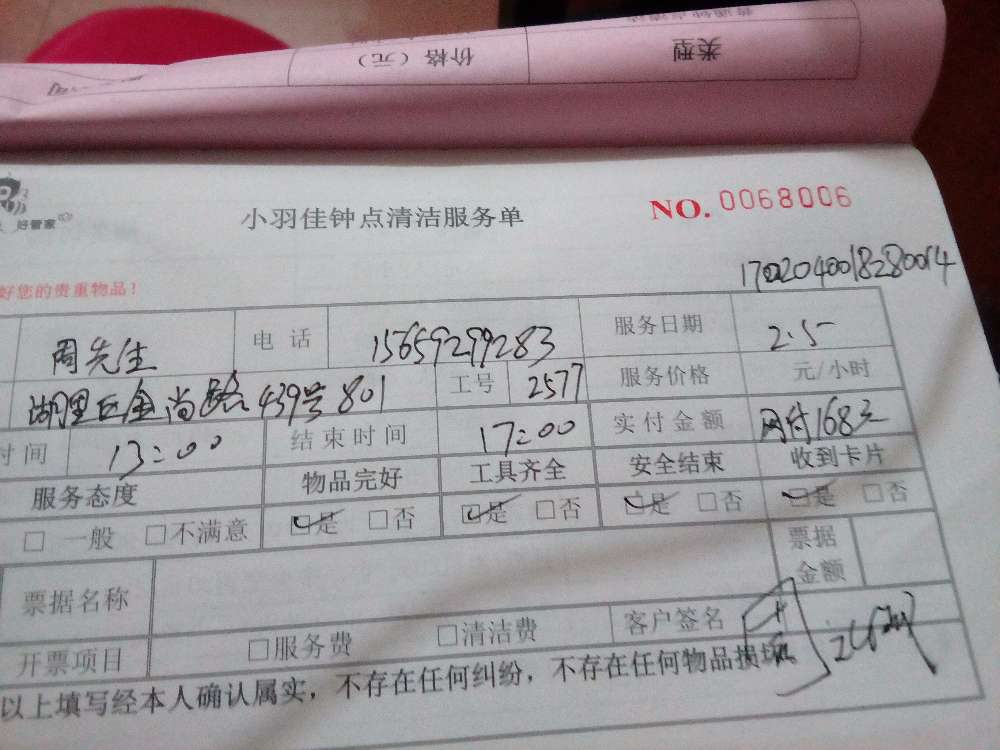 类型 价格（元）
好管家
小羽佳钟点清洁服务单 NO. 0068006
好您的贵重物品！
周先生 电话 15659299283 服务日期 2.5
湖里区金尚路439号801 工号 2577 服务价格 元/小时
时间 13:00 结束时间 17:00 实付金额 网付168元
服务态度 物品完好 工具齐全 安全结束 收到卡片
□ 一般 □不满意 ☑是 □否 ☑是 □否 ☑是 □否 ☑是 □否
票据名称 票据金额
开票项目 □服务费 □清洁费 客户签名
以上填写经本人确认属实，不存在任何纠纷，不存在任何物品损坏